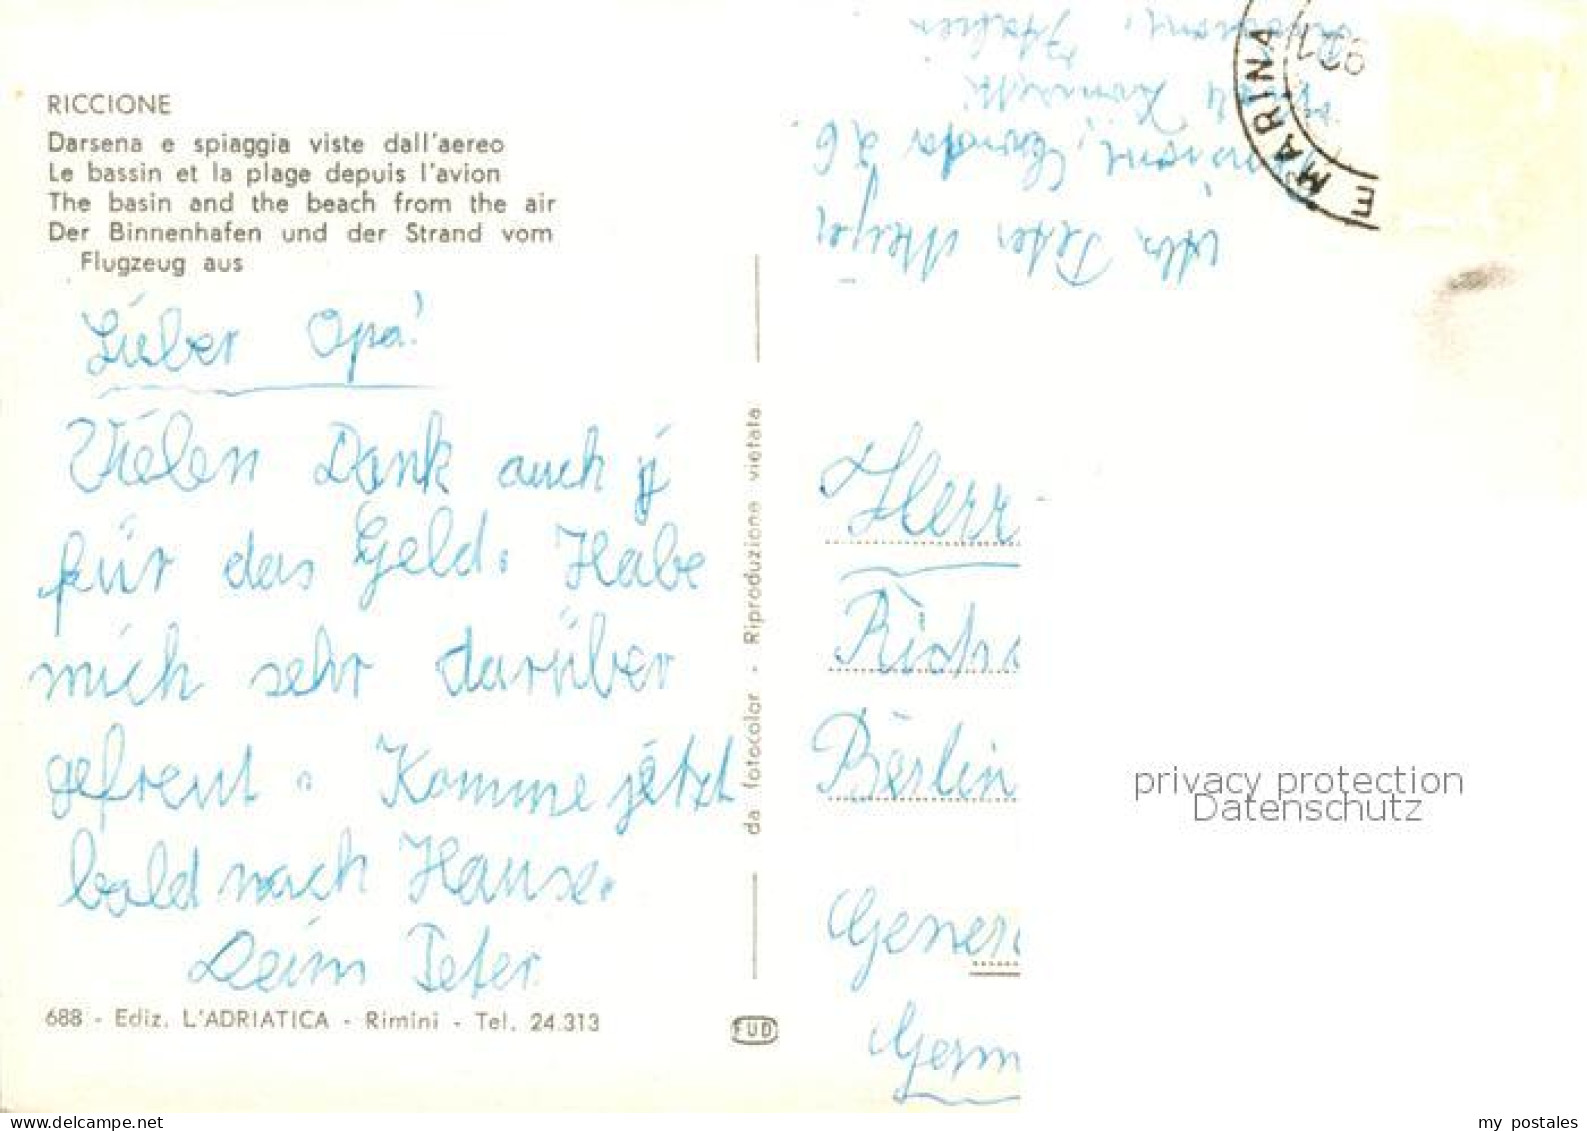 RICCIONE
Darsena e spiaggia viste dall'aereo
Le bassin et la plage depuis l'avion
The basin and the beach from the air
Der Binnenhafen und der Strand vom
Flugzeug aus
Lieber Opa!
Vielen Dank auch
für das Geld. Habe
mich sehr darüber
gefreut. Komme jetzt
bald nach Hause.
Deim Peter.
688 - Ediz. L'ADRIATICA - Rimini - Tel. 24.313
da fotocolor - Riproduzione vietata
FUD
Abs. Peter Meyer
Italien
E MARINA
921
Herr
Richa
Berlin
Genera
Germ
privacy protection
Datenschutz
www.delcampe.net
my_postales